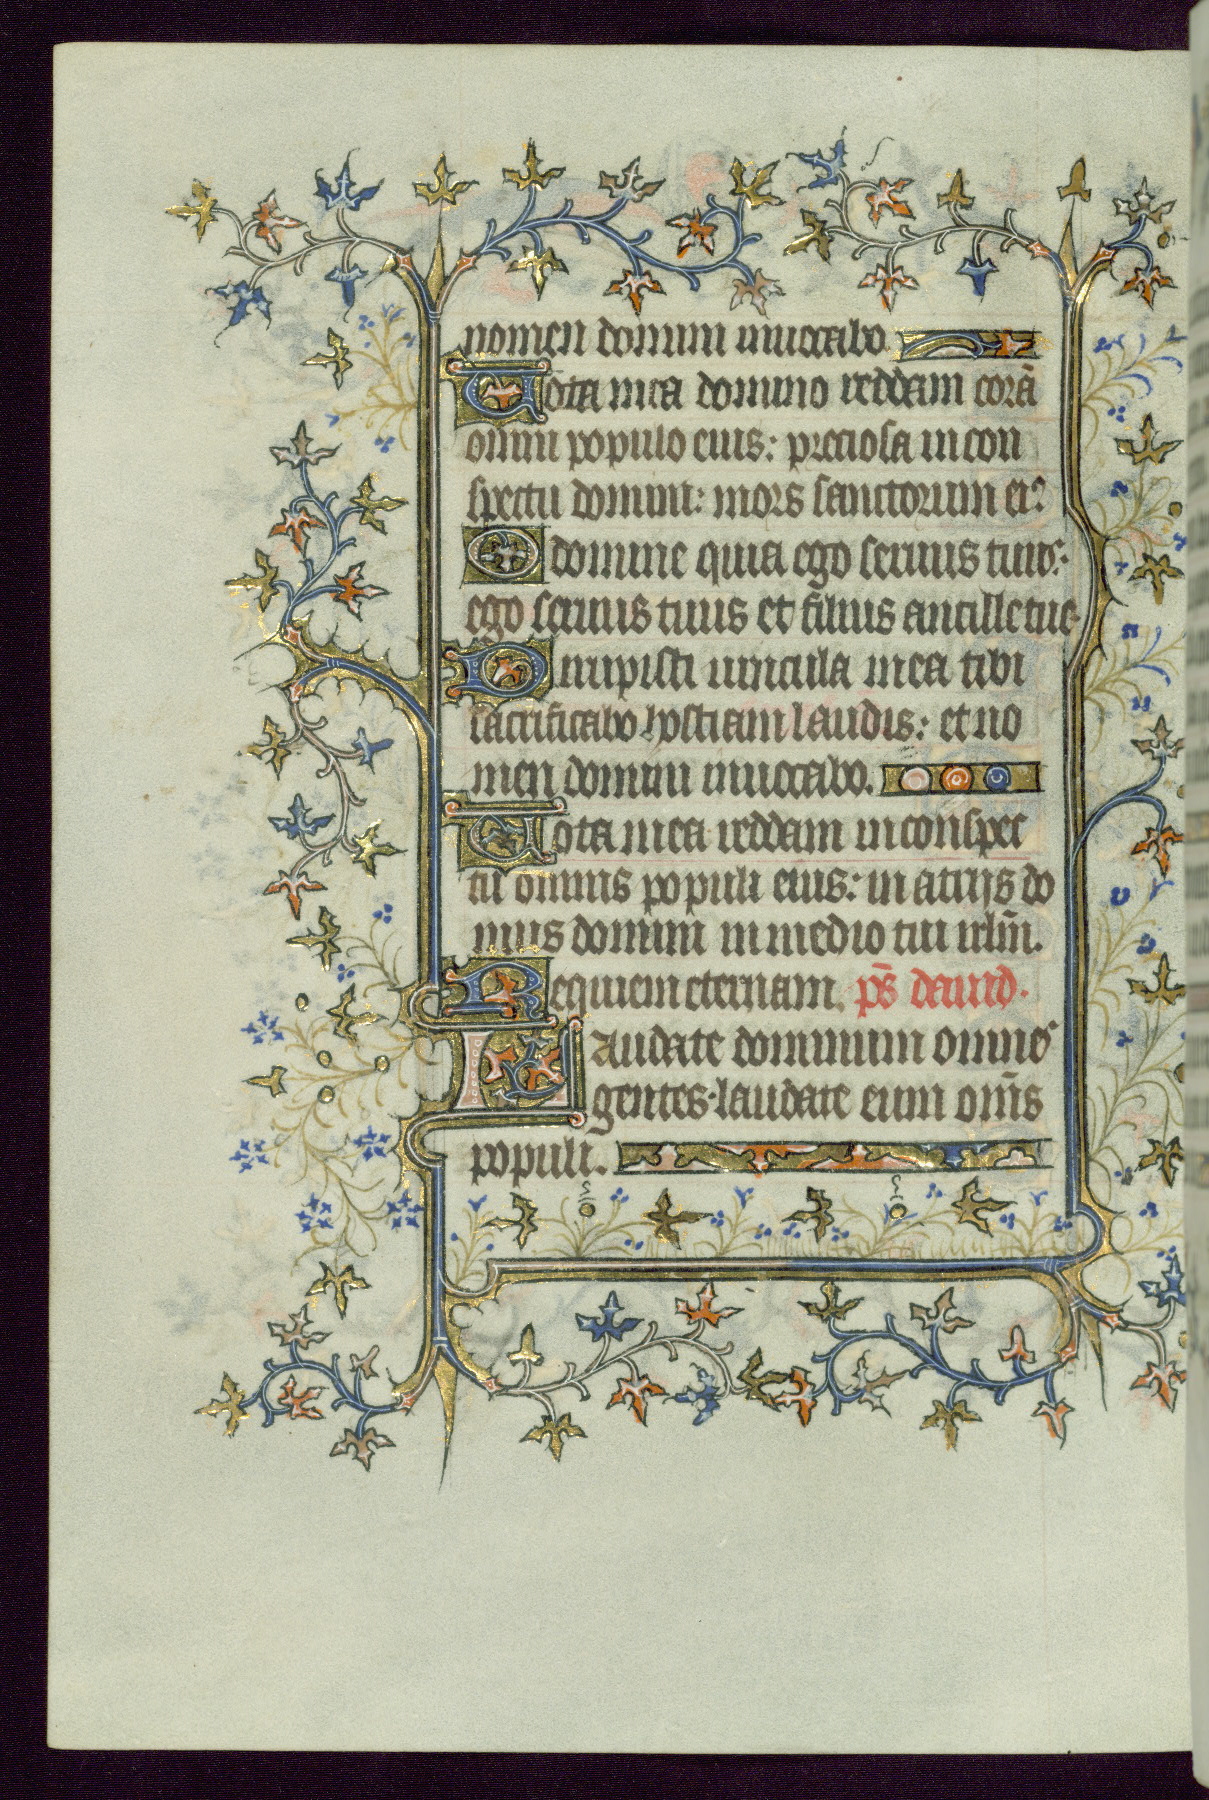 nomen domini inuocabo.
Uota mea domino reddam corā
omni populo eius: preciosa in con
spectu domini: mors sanctorum eiꝰ
O domine quia ego seruus tuus:
ego seruus tuus et filius ancille tue.
Dirupisti uincula mea tibi
sacrificabo hostiam laudis: et no
men domini inuocabo.
Uota mea reddam in conspec
tu omnis populi eius: in atrijs do
mus domini in medio tui irl̄m.
Requiem eternam. ps̄ dauid.
Laudate dominum omnes
gentes. laudate eum om̄s
populi.